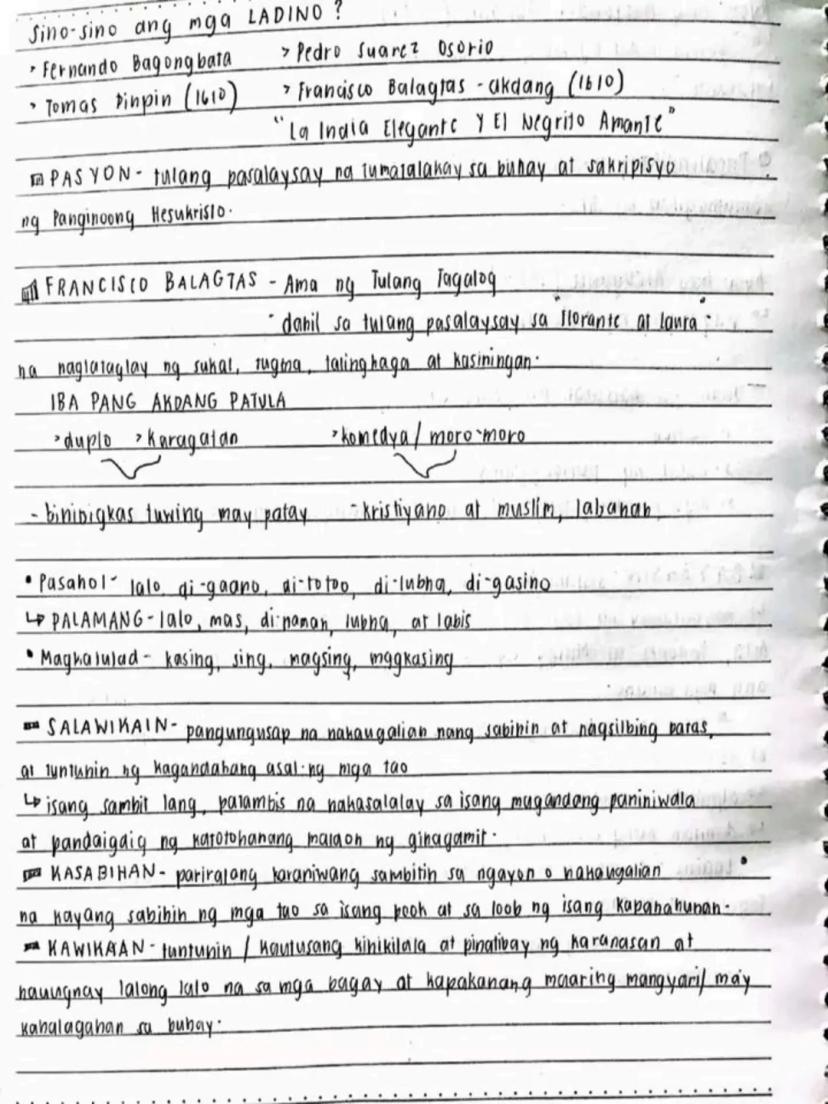 Sino-sino ang mga LADINO?
> Fernando Bagongbata > Pedro Suarez Osorio
> Tomas Pinpin (1610) > Francisco Balagtas - akdang (1610)
"La India Elegante Y El Negrito Amante"
PASYON - tulang pasalaysay na tumatalakay sa buhay at sakripisyo
ng Panginoong Hesukristo.
FRANCISCO BALAGTAS - Ama ng Tulang Tagalog
- dahil sa tulang pasalaysay sa "Florante at Laura"
na naglalaglay ng sukat, tugma, talinghaga at kasiningan.
IBA PANG AKDANG PATULA
> duplo > Karagatan > komedya / moro-moro
- binibigkas tuwing may patay - kristiyano at muslim, labanan
• Pasahol - lalo, di-gaano, di-totoo, di-lubha, di-gasino
↳ PALAMANG - lalo, mas, di-naman, lubha, at labis
• Magkatulad - kasing, sing, magsing, magkasing
SALAWIKAIN - pangungusap na nakaugalian nang sabihin at nagsilbing batas,
at tuntunin ng kagandahang asal ng mga tao
↳ isang sambit lang, patambis na nakasalalay sa isang magandang paniniwala
at pandaigdig ng katotohanang malaon ng ginagamit.
KASABIHAN - pariralang karaniwang sambitin sa ngayon o nakaugalian
na kayang sabihin ng mga tao sa isang pook at sa loob ng isang kapanahunan.
KAWIKAAN - tuntunin / kautusang kinikilala at pinatibay ng karanasan at
kauugnay lalong lalo na sa mga bagay at kapakanang maaring mangyari/ may
kahalagahan sa buhay.